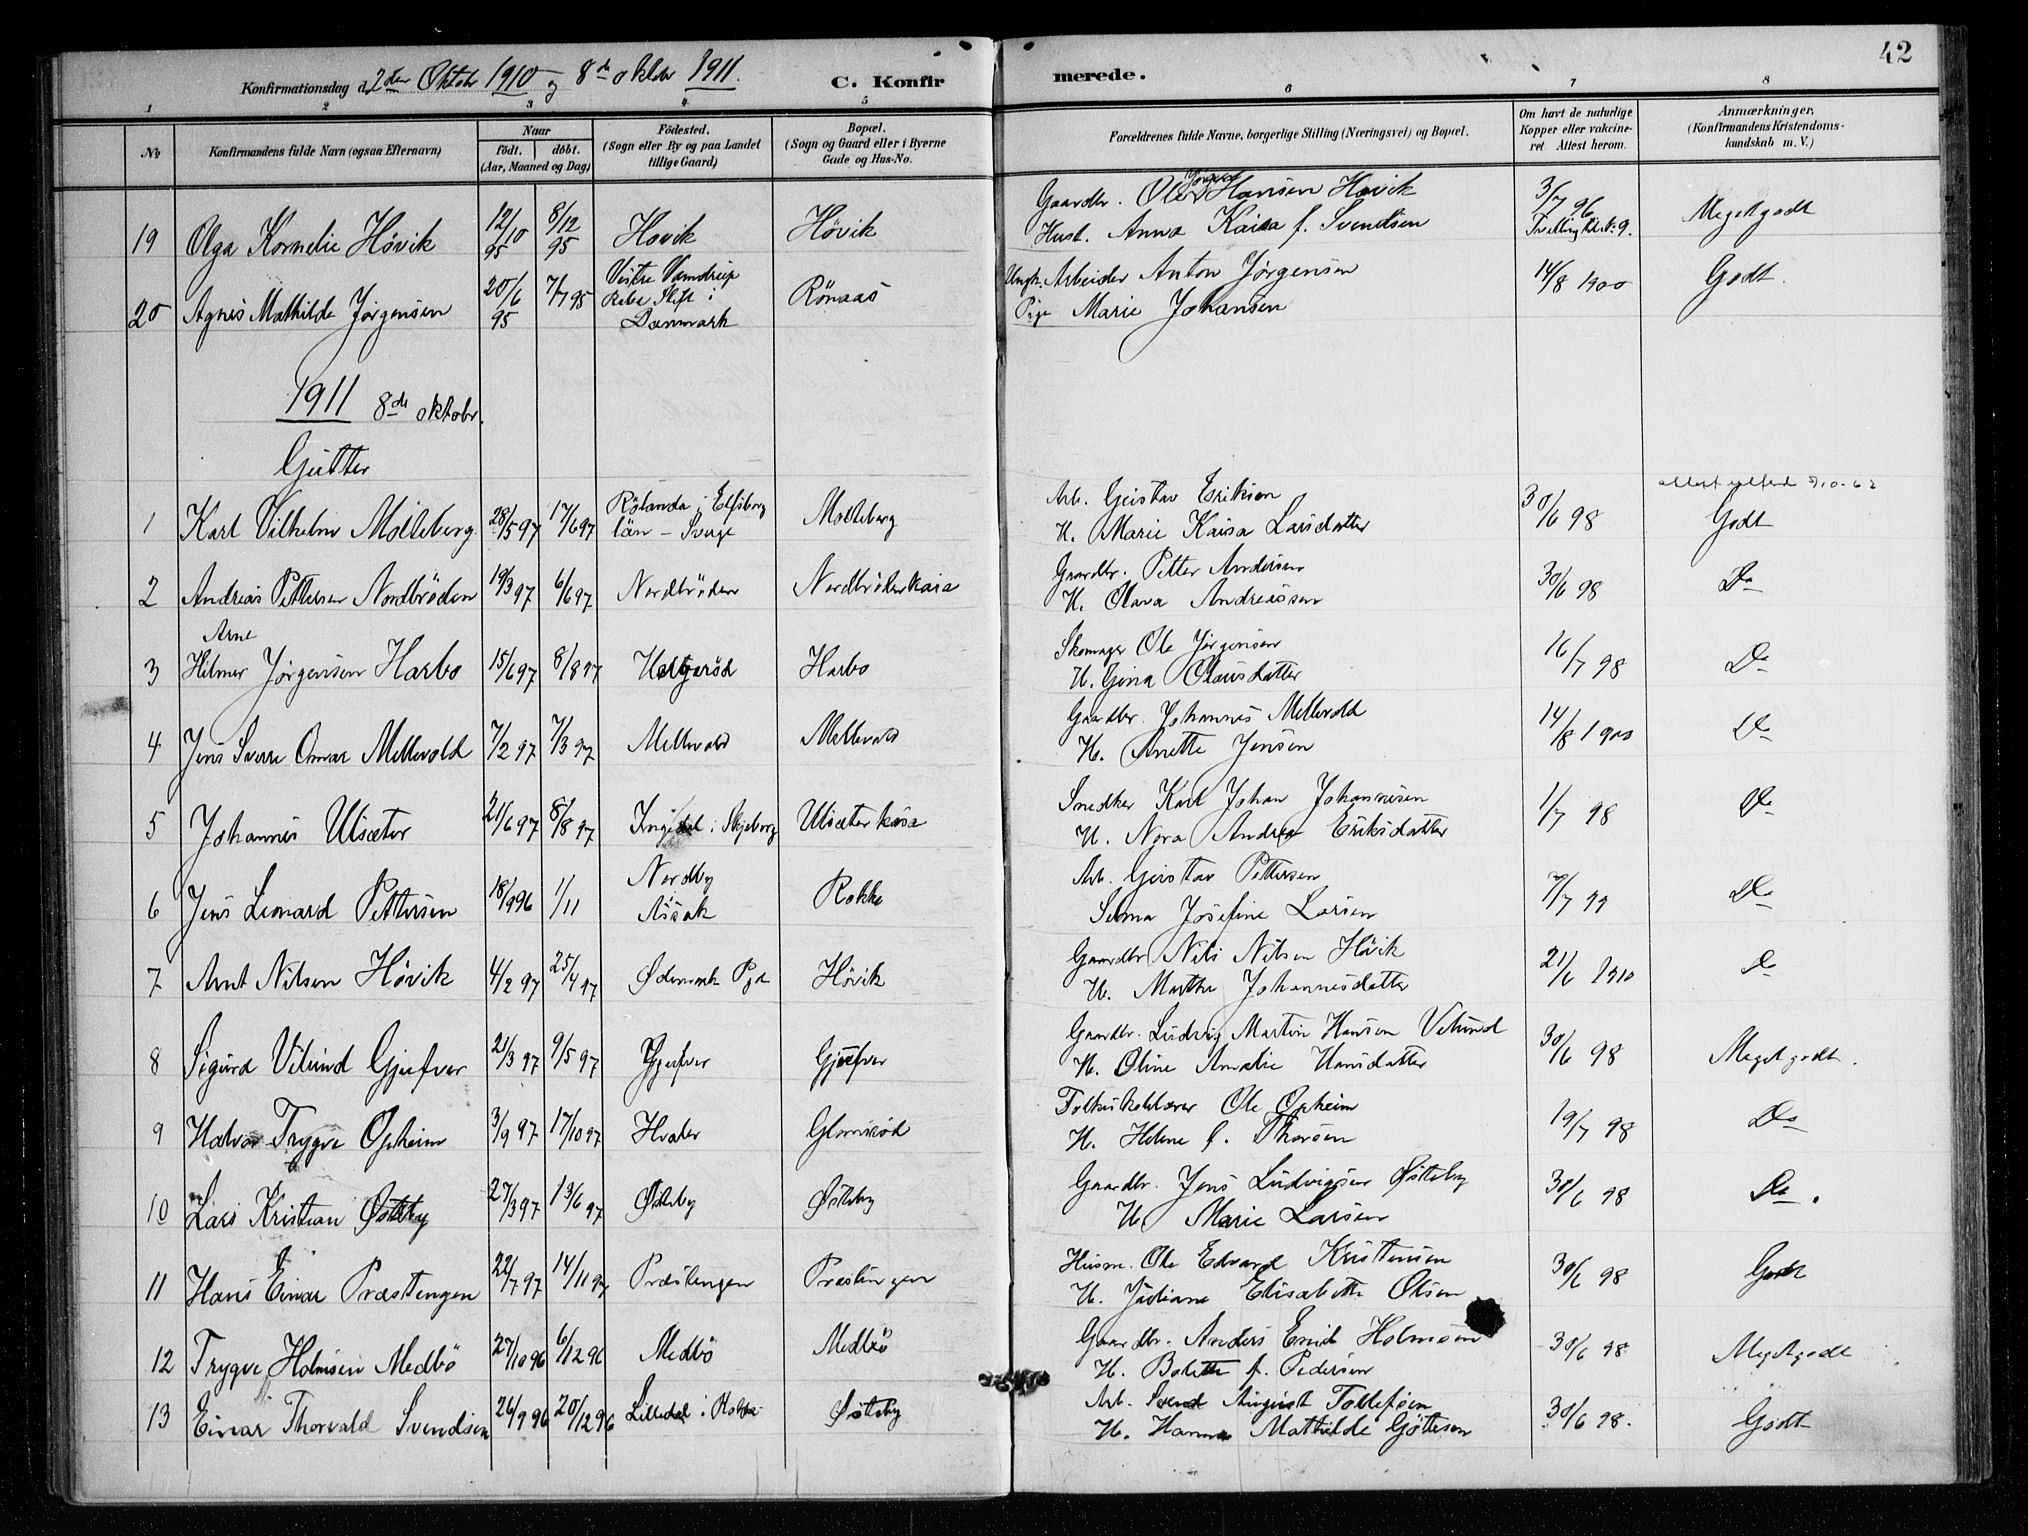 42
Konfirmationsdag d. 2den Oktobr 1910 og 8de oktobr 1911. C. Konfirmerede.
1 2 3 4 5 6 7 8
No Konfirmandens fulde Navn (ogsaa Efternavn) Naar født. døbt. (Aar, Maaned og Dag) Fødested. (Sogn eller By og paa Landet tillige Gaard) Bopæl. (Sogn og Gaard eller i Byerne Gade og Hus-No. Forældrenes fulde Navne, borgerlige Stilling (Næringsvei) og Bopæl. Om havt de naturlige Kopper eller vaccineret. Attest herom. Anmærkninger. (Konfirmandens Kristendomskundskab m. V.)
Gaardbr. Ole Hansen Høvik 3/7 96
19 Olga Kornelie Høvik 12/10 95 8/12 95 Høvik Høvik Hust. Anna Kaisa f. Svendsen Meget godt
20 Agnes Mathilde Jørgensen 20/6 95 7/7 95 Vestre Vamdrup Ribe Stift i Danmark Rönaas Ungk. Arbeider Anton Jørgensen 14/8 1900 Godt.
Pige Marie Johansen
1911 8de oktobr.
Gutter
1 Karl Vilhelm Molteberg 28/5 97 17/6 97 Rölanda i Elfsborg län - Sverige Molteberg Arb. Gustav Eriksen 30/6 98 Godt
H. Marie Kaisa Larsdatter
2 Andreas Pettersen Nordbrøden 19/3 97 6/6 97 Nordbröden Nordbröden Gaardbr. Petter Andersen 30/6 98 Do
H. Olava Andreassen
Arne
3 Hilmer Jørgensen Harbo 15/6 97 8/8 97 Holgerød Harbo Skomager Ole Jørgensen 16/7 98 Do
H. Gina Olausdatter
4 Jens Sverre Omar Mellevold 7/2 97 7/3 97 Mellevold Mellevold Gaardbr. Johannes Mellevold 14/8 1900 Do
H. Anette Jensen
5 Johannes Ulsæter 21/6 97 8/8 97 Ingedal i Skjeberg Ulsæter Snedker Karl Johan Johannesen 1/7 98 Do
H. Nora Andrea Eriksdatter
6 Jens Leonard Pettersen 18/9 96 1/11 Nordby Asak Rokke Arb. Gustav Pettersen 7/7 99 Do
Selma Josefine Larsen
7 Arnt Nilsen Høvik 4/2 97 25/4 97 Ødemark Pgd Høvik Gaardbr Nils Nilsen Hövik 21/6 1910 Do
H. Marthe Johannesdatter
8 Sigurd Vilund Gjefver 21/3 97 9/5 97 Gjefver Gjefver Gaardbr. Ludvig Martin Hansen Vilund 30/6 98 Meget godt.
H. Oline Amalie Hansdatter
9 Halvor Trygve Opheim 3/9 97 17/10 97 Hvaler Folkeskolelærer Ole Opheim 19/7 98 Do
H. Helene f. Thorsen
10 Lars Kristian Østby 27/3 97 13/6 97 Østeby Østeby Gaardbr. Jens Ludvigsen Østeby 30/6 98 Do.
H. Marie Larsen
11 Hans Einar Præstengen 22/7 97 14/11 97 Præstengen Præstengen Husm. Ole Edvard Kristensen 30/6 98 Godt
H. Juliane Elisabeth Olsen
12 Trygve Holmsen Medbö 27/10 96 6/12 96 Medbö Medbö Gaardbr. Anders Emil Holmsen 30/6 98 Meget godt
H. Bolette f. Pedersen
13 Einar Thorvald Svendsen 26/9 96 20/12 96 Lilledal i Rokke Østeby Arb. Svend August Tollefsen 30/6 98. Godt
H. Hanna Mathilde